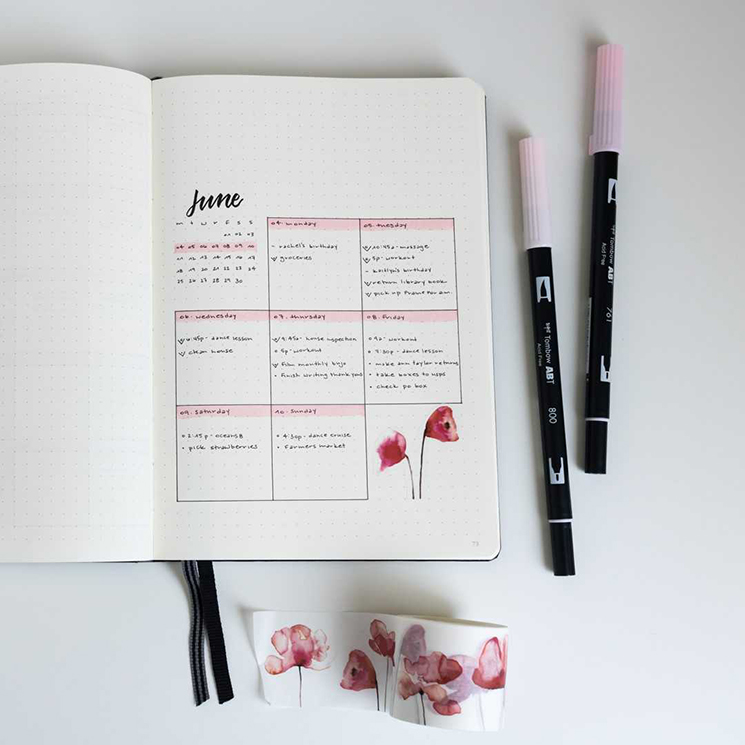 June
M T W R F S S
01 02 03
04 05 06 07 08 09 10
11 12 13 14 15 16 17
18 19 20 21 22 23 24
25 26 27 28 29 30
04. monday
- rachel's birthday
groceries
05. tuesday
10:45a - massage
5p - workout
- kaitlyn's birthday
return library book
pick up
06. wednesday
6:45p - dance lesson
clean house
07. thursday
9:45a - house inspection
5p - workout
film monthly bujo
finish writing thank yous
08. friday
9a - workout
7:30p - dance lesson
make ann taylor returns
take boxes to usps
check po box
09. saturday
2:15p - oceans 8
pick strawberries
10. sunday
4:30p - dance cruise
farmers market
73
Tombow ABT
Acid Free
800
Tombow ABT
Acid Free
761